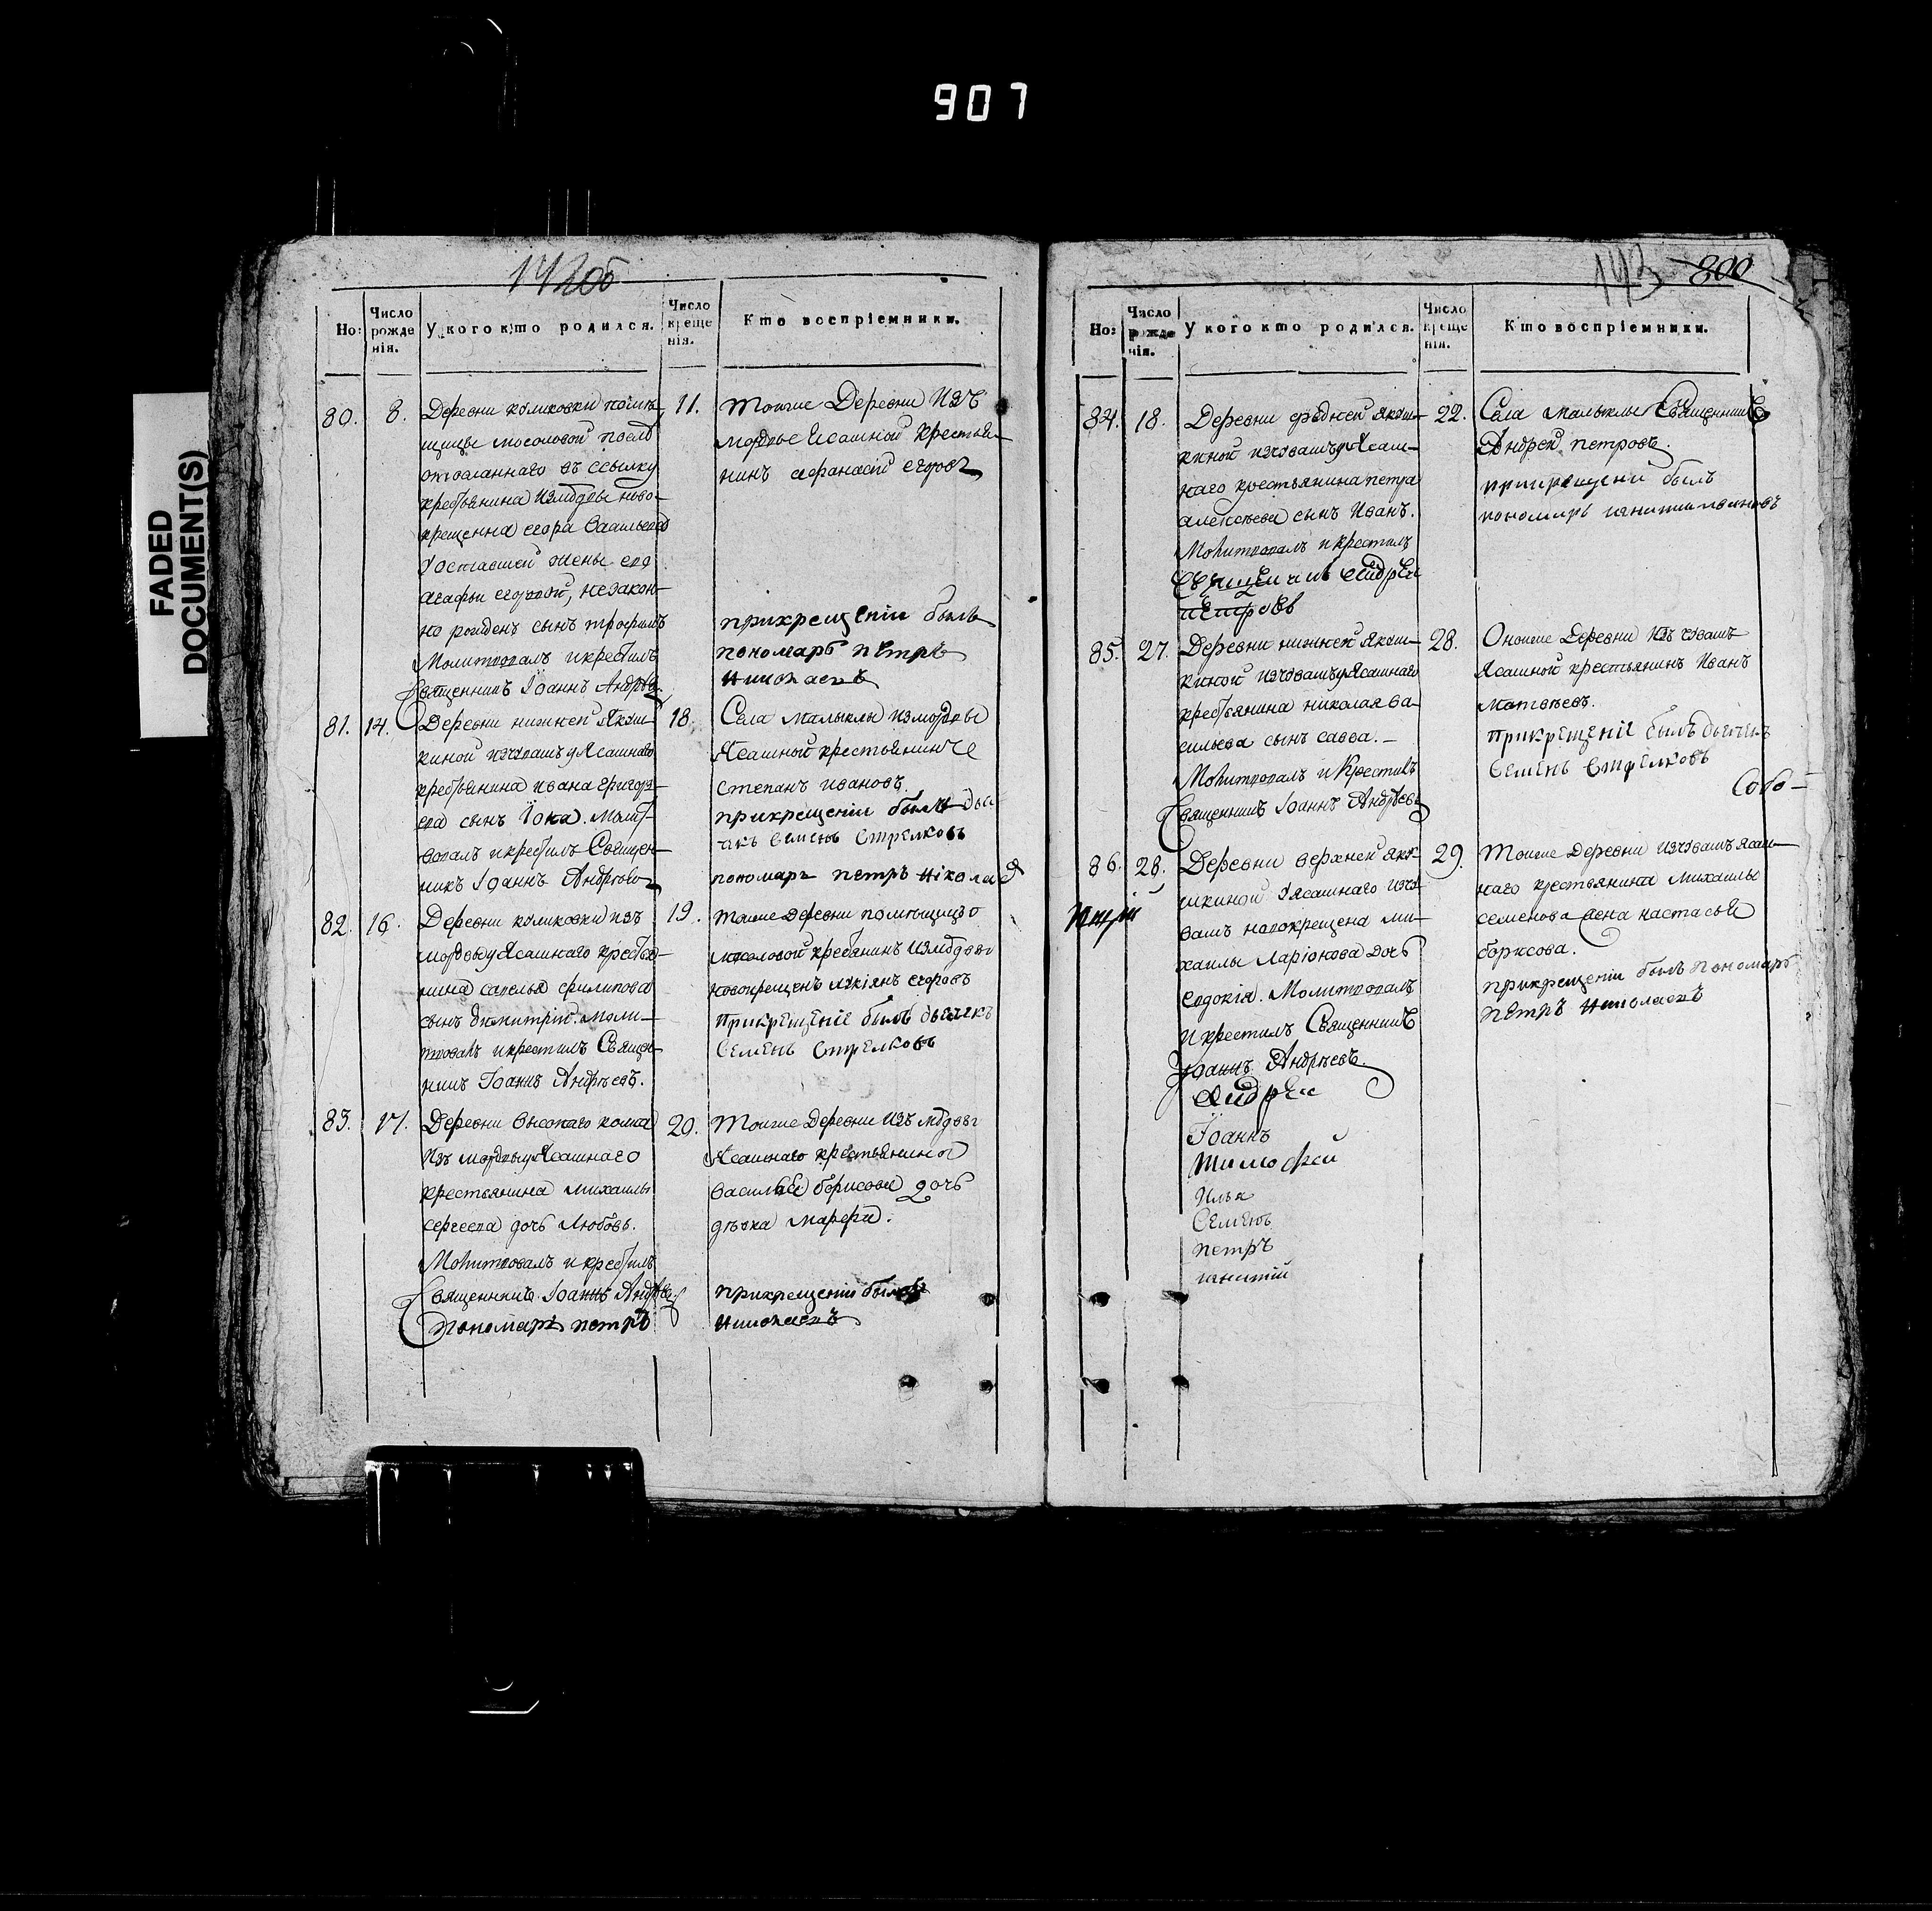 907
FADED
DOCUMENT(S)
142об
Но:
Число
рожде
нія.
У кого кто родился.
Число
креще
нія.
Кто воспріемники.
80.
8.
Деревни куликовки помѣ
щицы мосоловой послѣ
отосланнаго въ ссылку
крестьянина измордвы ново-
крещенна егора Васильева
уоставшей жены его
агафьи егоровой, незакон-
но рожденъ сынъ трофимъ
Молитвовалъ икрестилъ
Священникъ Іоаннъ Андрѣев
11.
тоиже Деревни Изъ
мордвы Ясашной крестья-
нинъ афанасій егоровъ
прикрещеніи былъ
пономарь пЕтръ
Николаевъ
81.
14.
Деревни нижней Якуш-
киной изчувашъ уЯсашнаго
крестьянина ивана григорь-
ева сынъ Іона. Молит-
вовалъ икрестилъ Священ-
никъ Іоаннъ Андрѣевъ
18.
Села малыклы измордвы
Ясашной крестьянинъ
степанъ ивановъ.
прикрещеніи былъ дья
чкъ Семенъ Стрелковъ
пономарь петръ Николаев
82.
16.
Деревни куликовки изъ
мордвы уЯсашнаго крестья-
нина савелья филипова
сынъ димитрій. моли-
твовалъ икрестилъ Священ-
никъ Іоаннъ Андрѣевъ.
19.
тоиже Деревни помѣщицы
мосоловой крестьянинъ измордвы
новокрещенъ лукіянъ егоровъ
Прикрещеніе былъ дьячекъ
Семенъ Стрелковъ
83.
17.
Деревни Высокаго колка
Изъ мордвы уЯсашнаго
крестьянина михаилы
сергеева дочь Любовь.
Молитвовалъ икрестилъ
Священникъ Іоаннъ Андрѣев
Пономарь петръ
20.
Тоиже Деревни Изъ мордвы
Ясашнаго крестьянина
василья борисова дочь
дѣвка марфа.
прикрещеніи былъ
Николаевъ
143
800
Но:
Число
рожде
нія.
У кого кто родился.
Число
креще
нія.
Кто воспріемники.
84.
18.
Деревни средней якуш-
киной изчувашъ уЯсаш-
наго крестьянина петра
алексѣева сынъ Иванъ.
Молитвовалъ икрестилъ
Священникъ Андрей
пЕтровъ
22.
Села малыклы Священникъ
Андрей петровъ.
прикрещени былъ
пономарь игнатий ивановъ
85.
27.
Деревни нижней Якуш-
киной изчувашъ уЯсашнаго
крестьянина николая ва-
сильева сынъ савва.-
Молитвовалъ и Крестилъ
Священникъ Іоаннъ Андрѣевъ
28.
Оноиже Деревни Изъ чувашъ
Ясашной крестьянинъ Иванъ
матвѣевъ.
Прикрещеніе былъ дьячекъ
Семенъ Стрелковъ
Собо-
86.
28.
Деревни верхней яку-
шкиной уясашнаго изчу-
вашъ новокрещена ми-
хаилы ларіонова дочь
евдокія. Молитвовалъ
И крестилъ Священникъ
Іоаннъ Андрѣевъ.
29.
Тоиже деревни изчувашъ ясаш-
наго крестьянина михаилы
семенова жена настасья
борисова.
прикрещеніи былъ Пономарь
Петръ Николаевъ
Андрей
Іоаннъ
Тимофей
Илья
Семенъ
петръ
игнатій